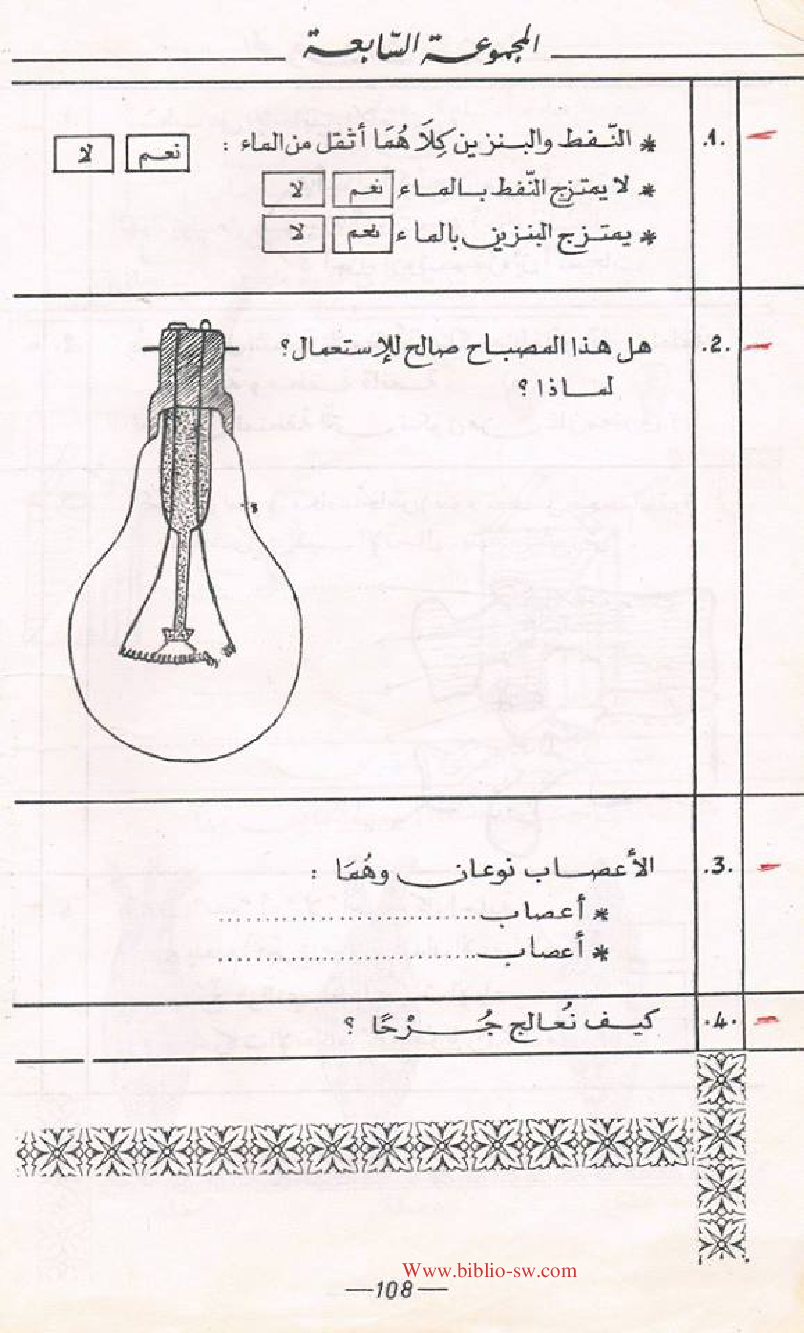 المجموعة السّابعة
1. * النّفط والبنزين كِلاَ هُمَا أثقل من الماء : نعم لا
* لا يمتزج النّفط بالماء نعم لا
* يمتزج البنزين بالماء نعم لا
2. هل هذا المصباح صالح للإستعمال؟
لماذا ؟
3. الأعصاب نوعان وهُمَا :
* أعصاب..........................
* أعصاب..........................
4. كيف نُعالج جُرْحًا ؟
Www.biblio-sw.com
—108—